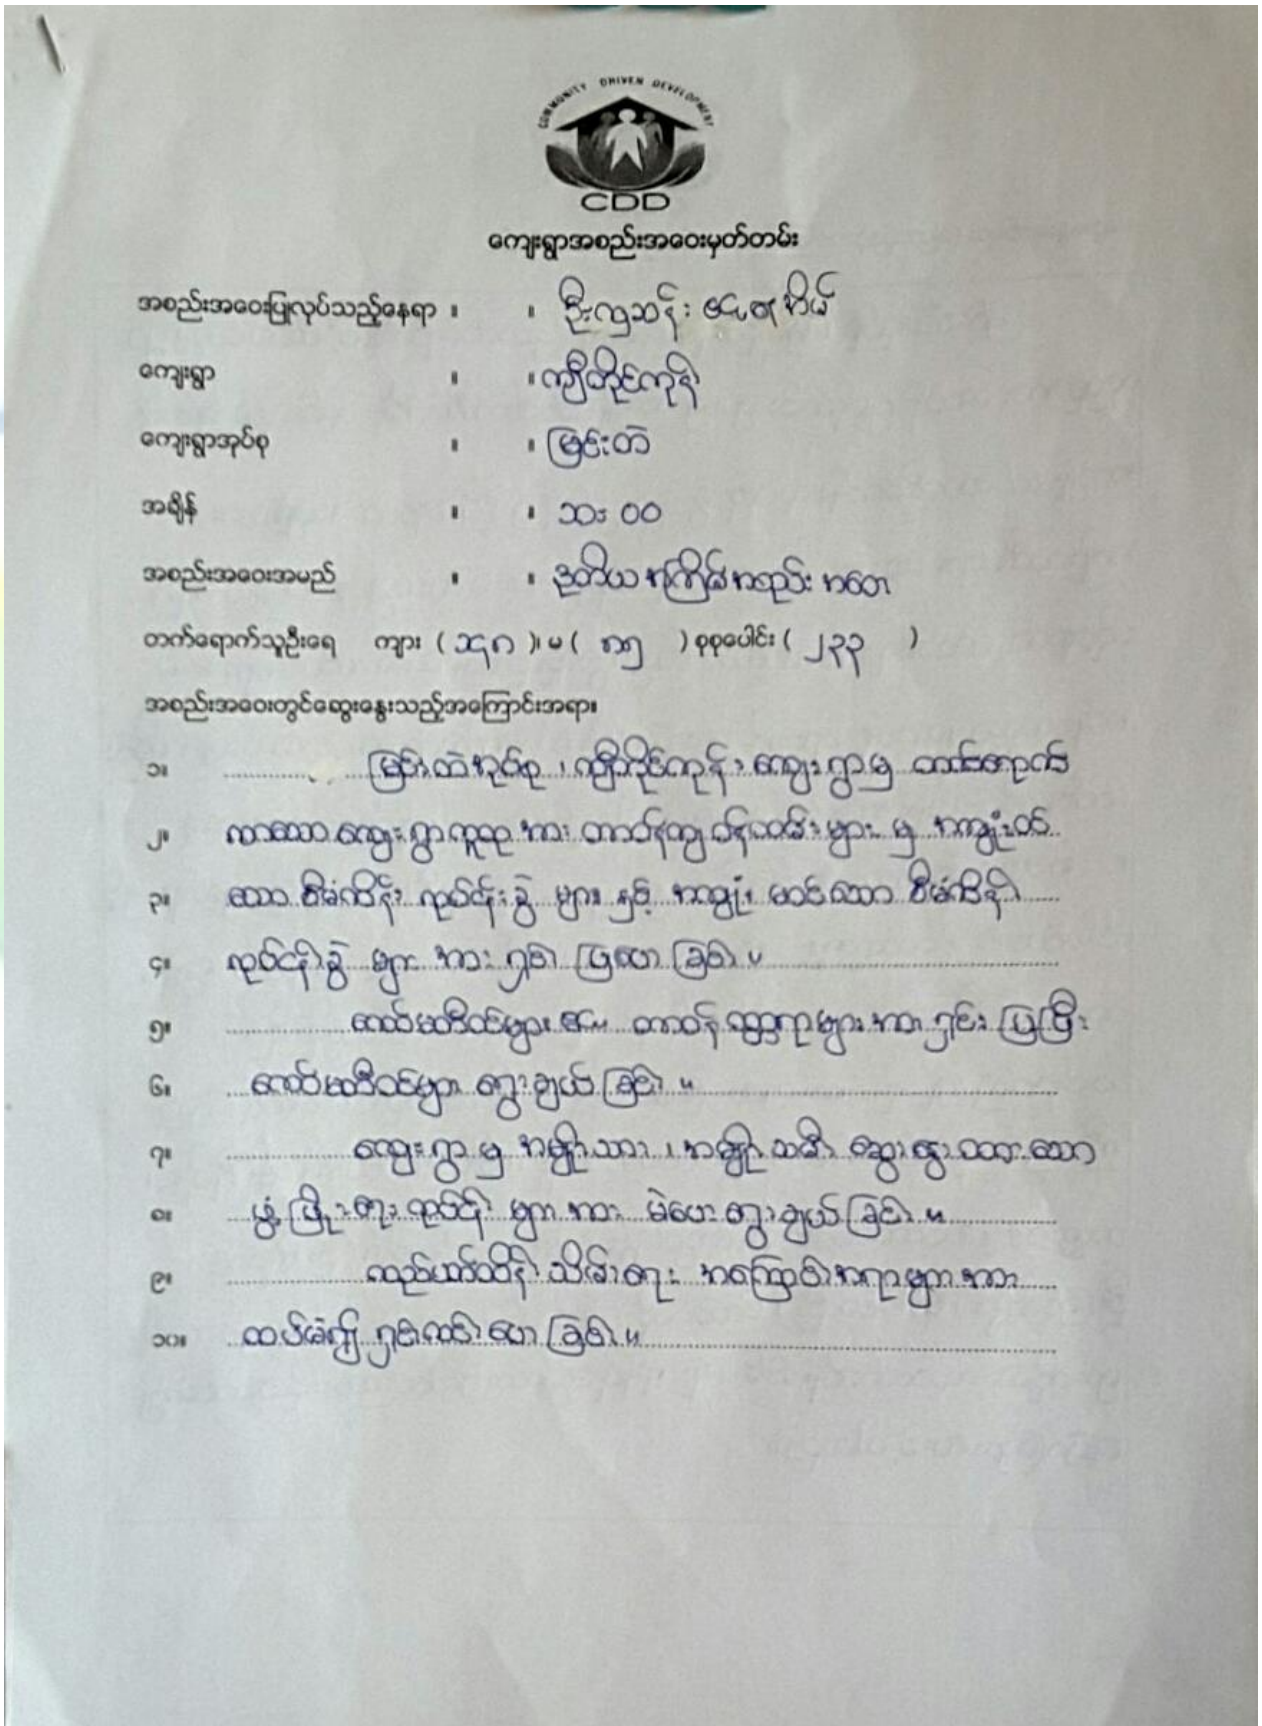 COMMUNITY DRIVEN DEVELOPMENT
CDD
ကျေးရွာအစည်းအဝေးမှတ်တမ်း
အစည်းအဝေးပြုလုပ်သည့်နေရာ ။ ။ ဦးလှဆန်း နေအိမ်
ကျေးရွာ ။ ။ ကျီတိုင်ကုန်း
ကျေးရွာအုပ်စု ။ ။ မြင်းတဲ
အချိန် ။ ။ ၁၁း ၀၀
အစည်းအဝေးအမည် ။ ။ ဒုတိယအကြိမ်အစည်းအဝေး
တက်ရောက်သူဦးရေ ကျား ( ၁၄၈ )၊ မ ( ၈၅ ) စုစုပေါင်း ( ၂၃၃ )
အစည်းအဝေးတွင်ဆွေးနွေးသည့်အကြောင်းအရာ။
၁။ မြင်းတဲအုပ်စု ၊ ကျီတိုင်ကုန်း ကျေးရွာမှ တက်ရောက်
၂။ လာသော ကျေးရွာလူထုအား တာဝန်ကျဝန်ထမ်းများ မှ အကျုံးဝင်
၃။ သော စီမံကိန်း လုပ်ငန်းခွဲ များ နှင့် အကျုံး မဝင်သော စီမံကိန်း
၄။ လုပ်ငန်းခွဲ များ အား ရှင်း ပြပေး ခြင်း ။
၅။ ကော်မတီဝင်များ ၏ တာဝန် ဝတ္တရားများ အား ရှင်း ပြပြီး
၆။ ကော်မတီဝင်များ ရွေးချယ် ခြင်း ။
၇။ ကျေးရွာ မှ အမျိုးသား ၊ အမျိုးသမီး ဆွေးနွေး ထားသော
၈။ ဖွံ့ဖြိုးရေး လုပ်ငန်း များ အား မဲပေး ရွေးချယ် ခြင်း ။
၉။ လည်ပတ်ထိန်းသိမ်းရေး အကြောင်းအရာများ အား
၁၀။ ထပ်မံ၍ ရှင်းလင်း ပေး ခြင်း ။